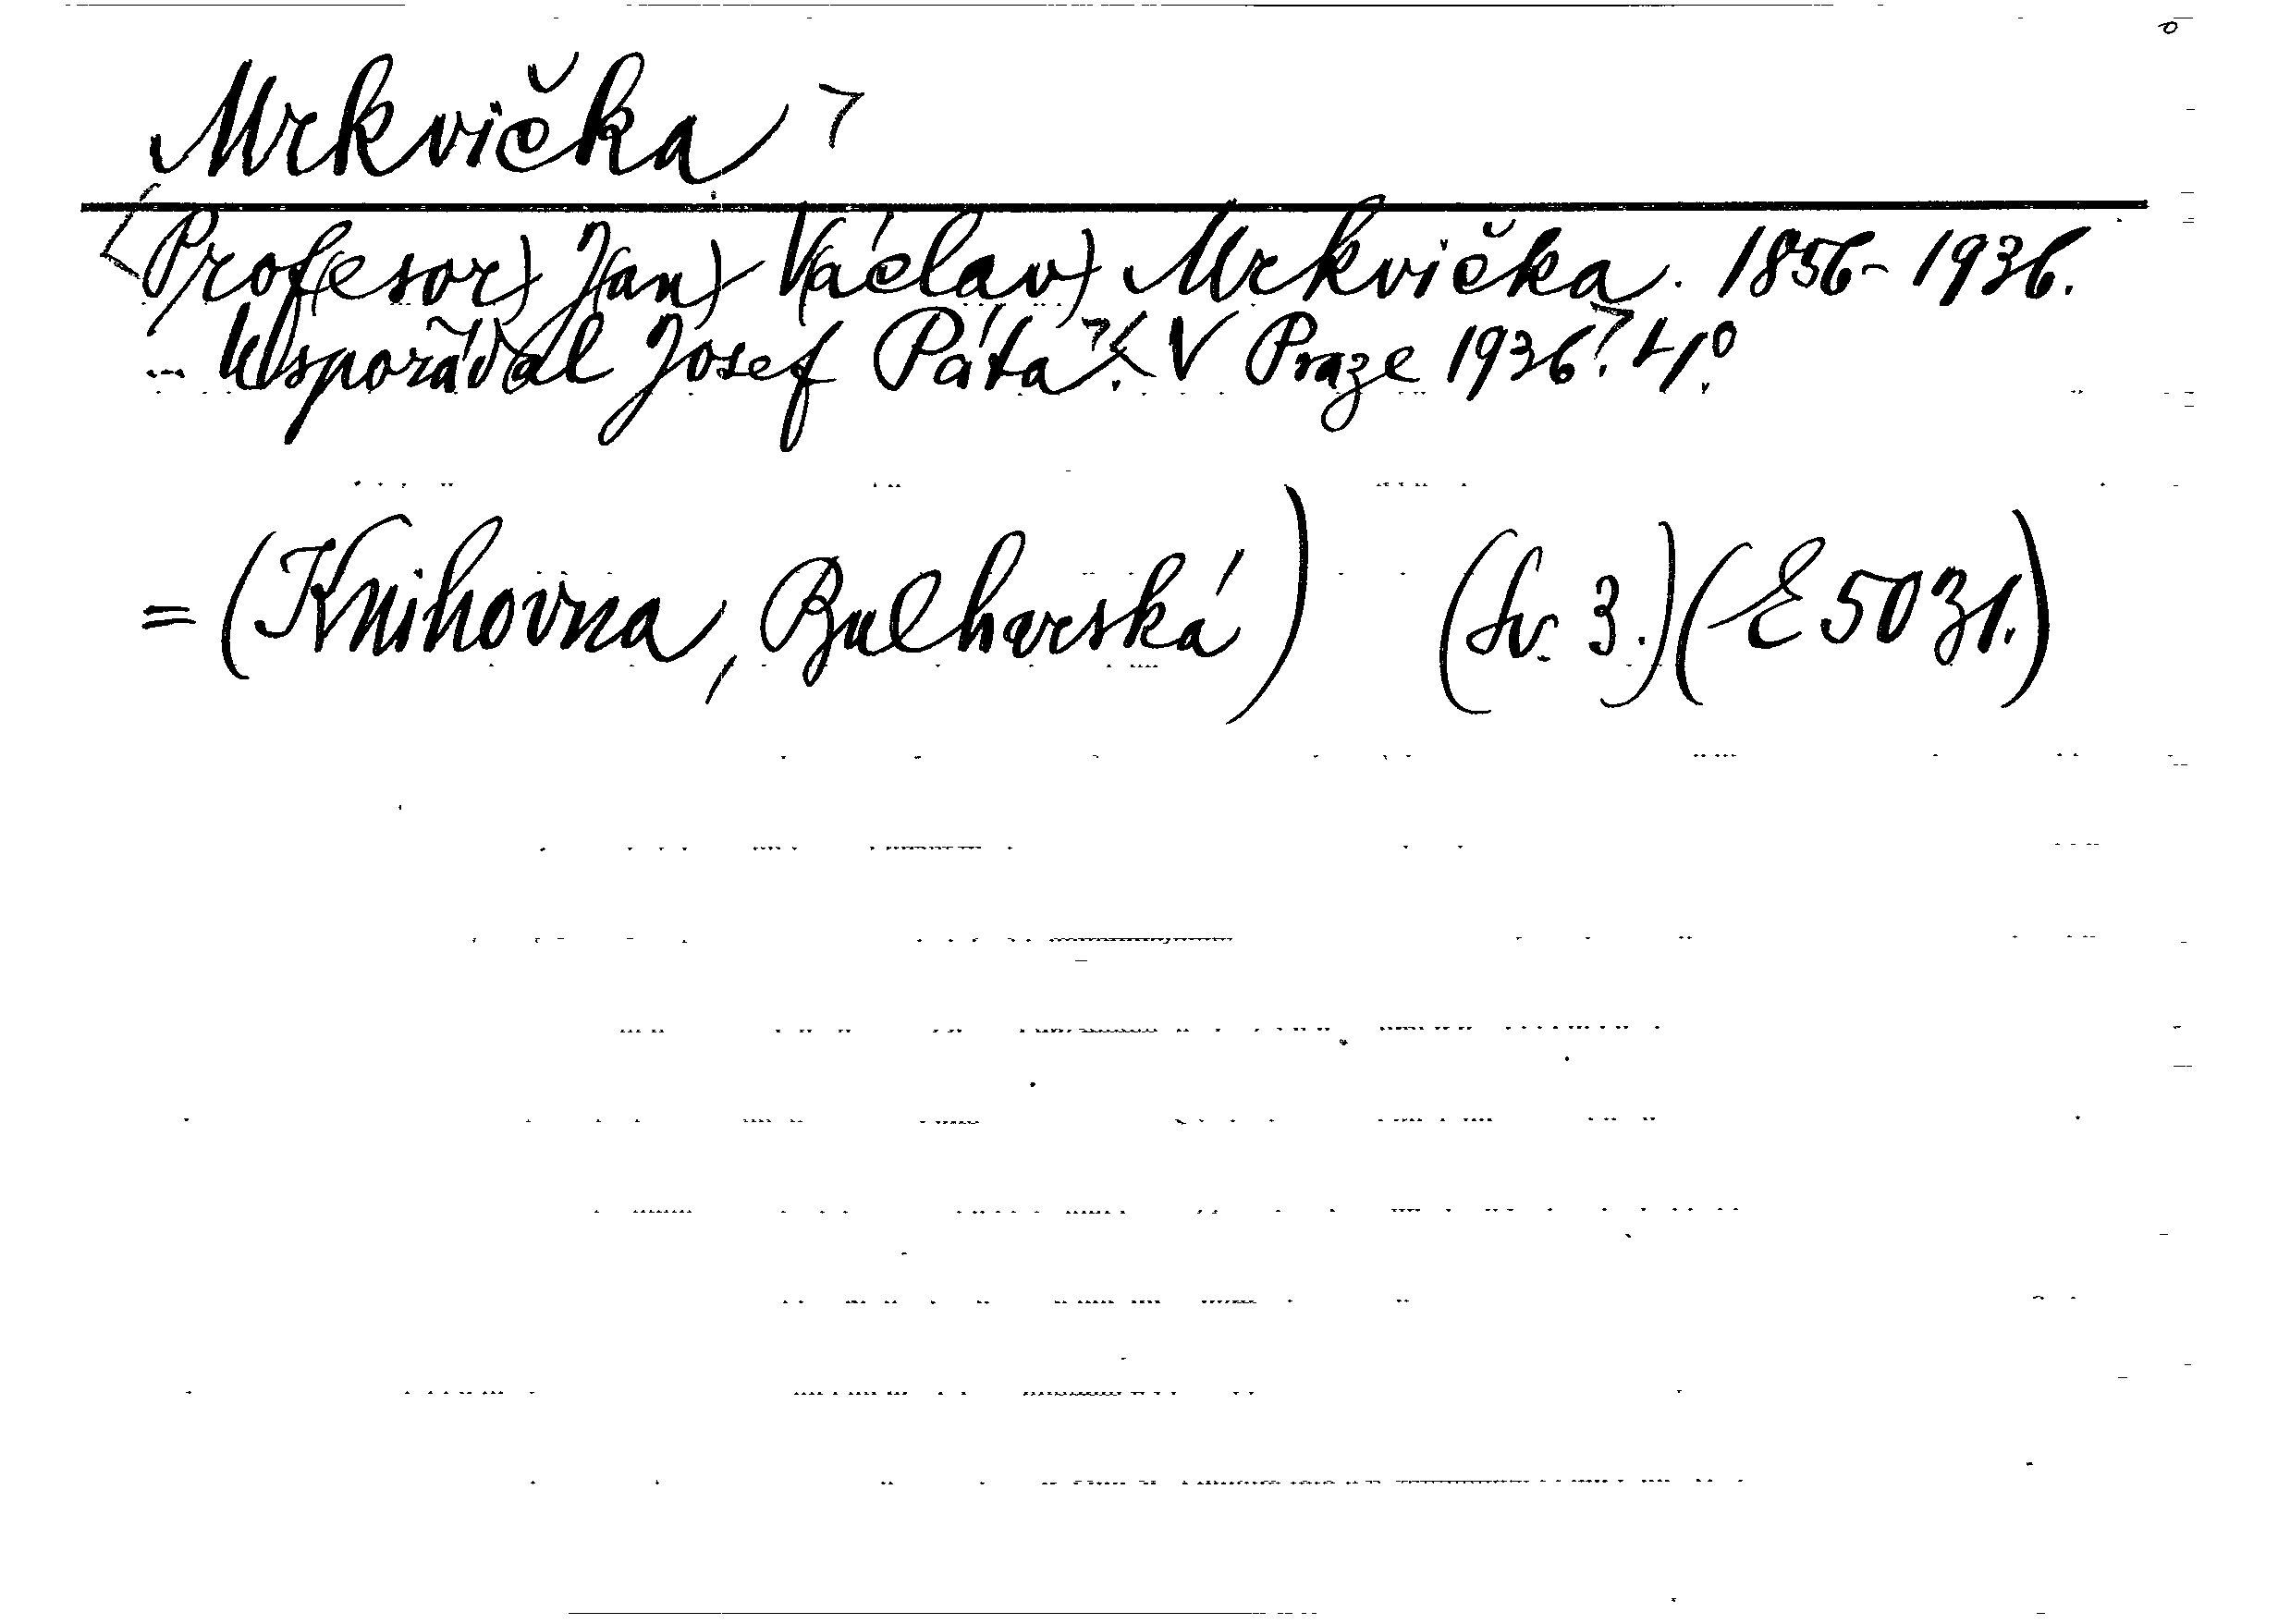 Mrkvička
Prof(esor) J(an) V(áclav) Mrkvička. 1856-1936.
Uspořádal Josef Páta. V Praze 1936. 4.°
= (Knihovna, Bulharská) (Sv. 3.) (E 5031.)